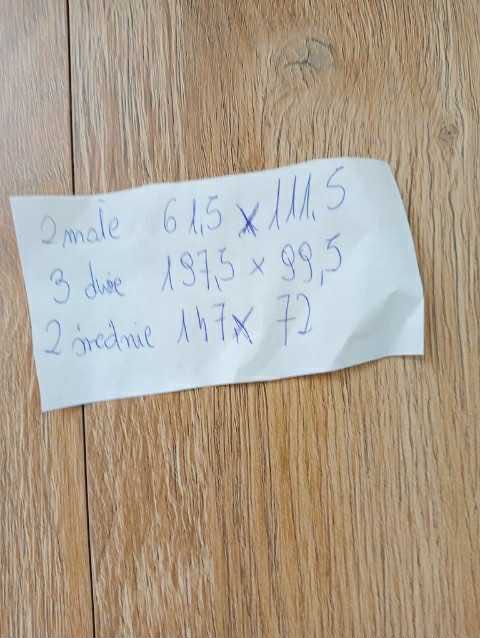 2 małe 61,5 x 111,5
3 duże 197,5 x 99,5
2 średnie 147 x 72